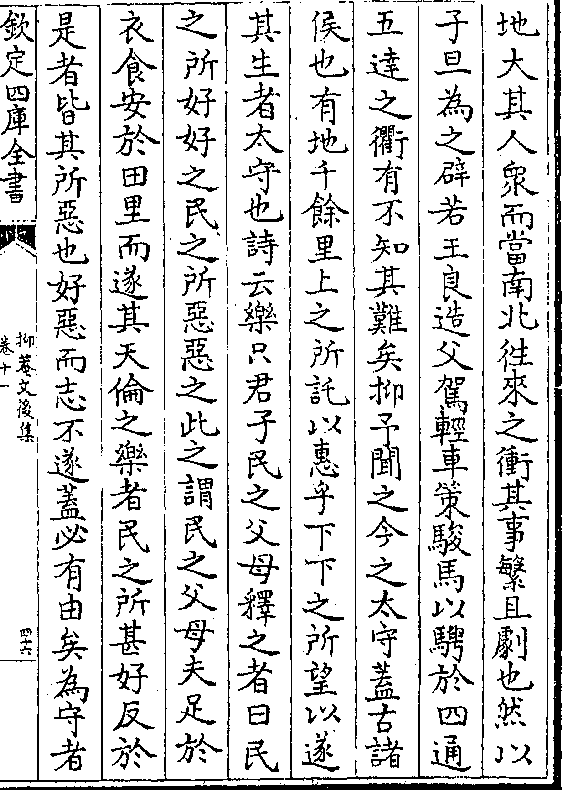 地大其人衆而當南北徃來之衝其事繁且劇也然以
子旦為之辟若王良造父駕輕車策駿馬以騁於四通
五達之衢有不知其難矣抑予聞之今之太守蓋古諸
侯也有地千餘里上之所託以惠乎下下之所望以遂
其生者太守也詩云樂只君子民之父母釋之者曰民
之所好好之民之所惡惡之此之謂民之父母夫足於
衣食安於田里而遂其天倫之樂者民之所甚好反於
是者皆其所惡也好惡而志不遂蓋必有由矣為守者
欽定四庫全書
抑菴文後集
卷十一
四十六